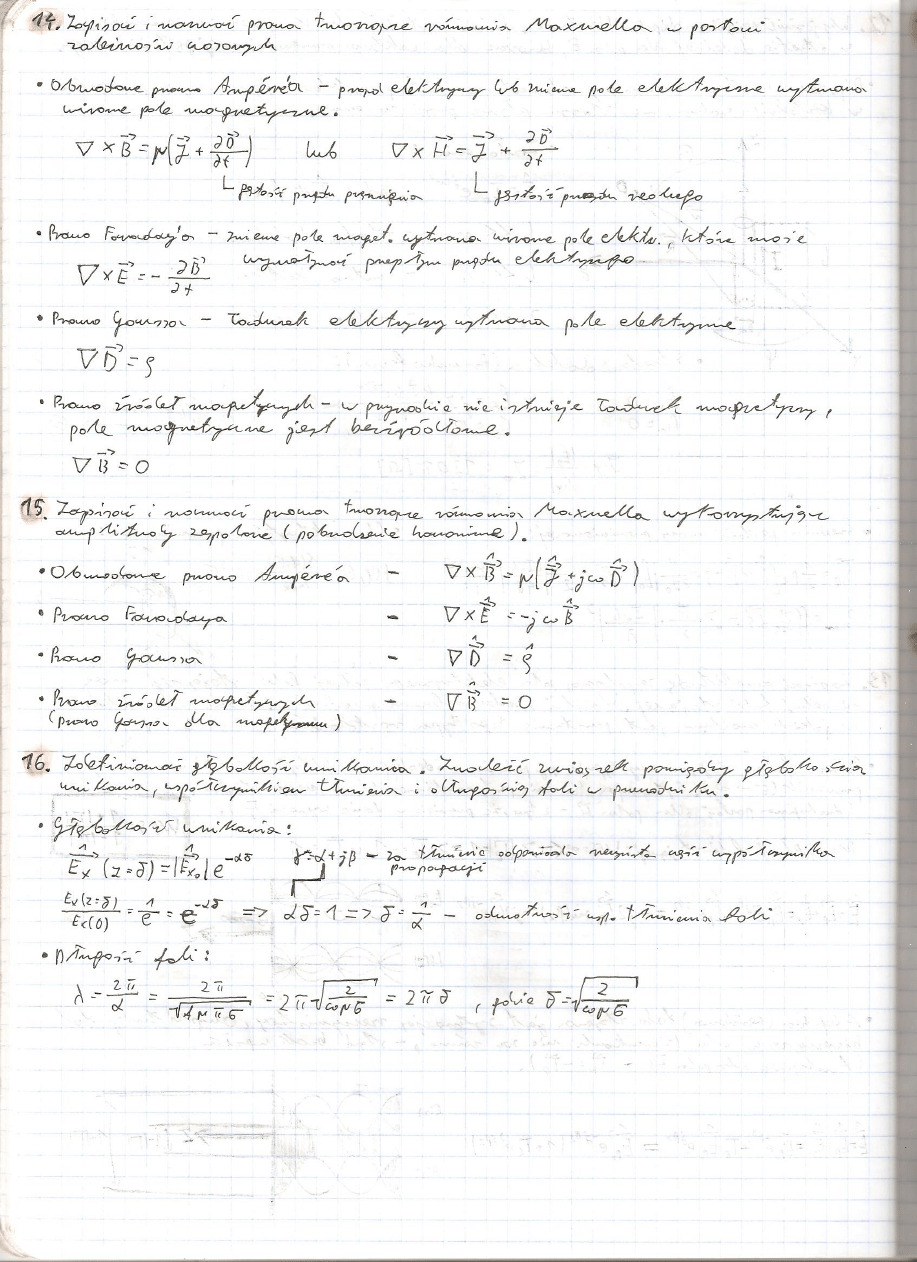 14. Zapisać i nazwać prawa tworzące równania Maxwella w postaci
zależności czasowych
• Obwodowe prawo Ampére'a – prąd elektryczny lub zmienne pole elektryczne wytwarza
wirowe pole magnetyczne.
∇ × B⃗ = μ(J⃗ + ∂D⃗/∂t) lub ∇ × H⃗ = J⃗ + ∂D⃗/∂t
gęstość prądu przesunięcia gęstość prądu realnego
• Prawo Faraday'a – zmienne pole magnet. wytwarza wirowe pole elektr., które może
∇ × E⃗ = – ∂B⃗/∂t wymuszać przepływ prądu elektrycznego
• Prawo Gaussa – ładunek elektryczny wytwarza pole elektryczne
∇ D⃗ = ρ
• Prawo źródeł magnetycznych – w przyrodzie nie istnieje ładunek magnetyczny,
pole magnetyczne jest bezźródłowe.
∇ B⃗ = 0
15. Zapisać i nazwać prawa tworzące równania Maxwella wykorzystując
amplitudy zespolone (pobudzenie harmoniczne).
• Obwodowe prawo Ampére'a – ∇ × B̂⃗ = μ(Ĵ⃗ + jω D̂⃗)
• Prawo Faradaya – ∇ × Ê⃗ = –jω B̂⃗
• Prawo Gaussa – ∇ D̂⃗ = ρ̂
• Prawo źródeł magnetycznych – ∇ B̂⃗ = 0
(prawo Gaussa dla magnetyzmu)
16. Zdefiniować głębokość wnikania. Znaleźć związek pomiędzy głębokością
wnikania, współczynnikiem tłumienia i długością fali w przewodniku.
• Głębokość wnikania:
Ê⃗x (z=δ) = |Ê⃗x₀| e^(-αδ) γ = α + jβ – za tłumienie odpowiada rzeczywista część współczynnika
propagacji
Ex(z=δ)/Ex(0) = 1/e = e^(-αδ) => αδ = 1 => δ = 1/α – odwrotność wsp. tłumienia fali
• Długość fali:
λ = 2π/α = 2π/√(fμπσ) = 2π √(2/(ωμσ)) = 2π δ , gdzie δ = √(2/(ωμσ))